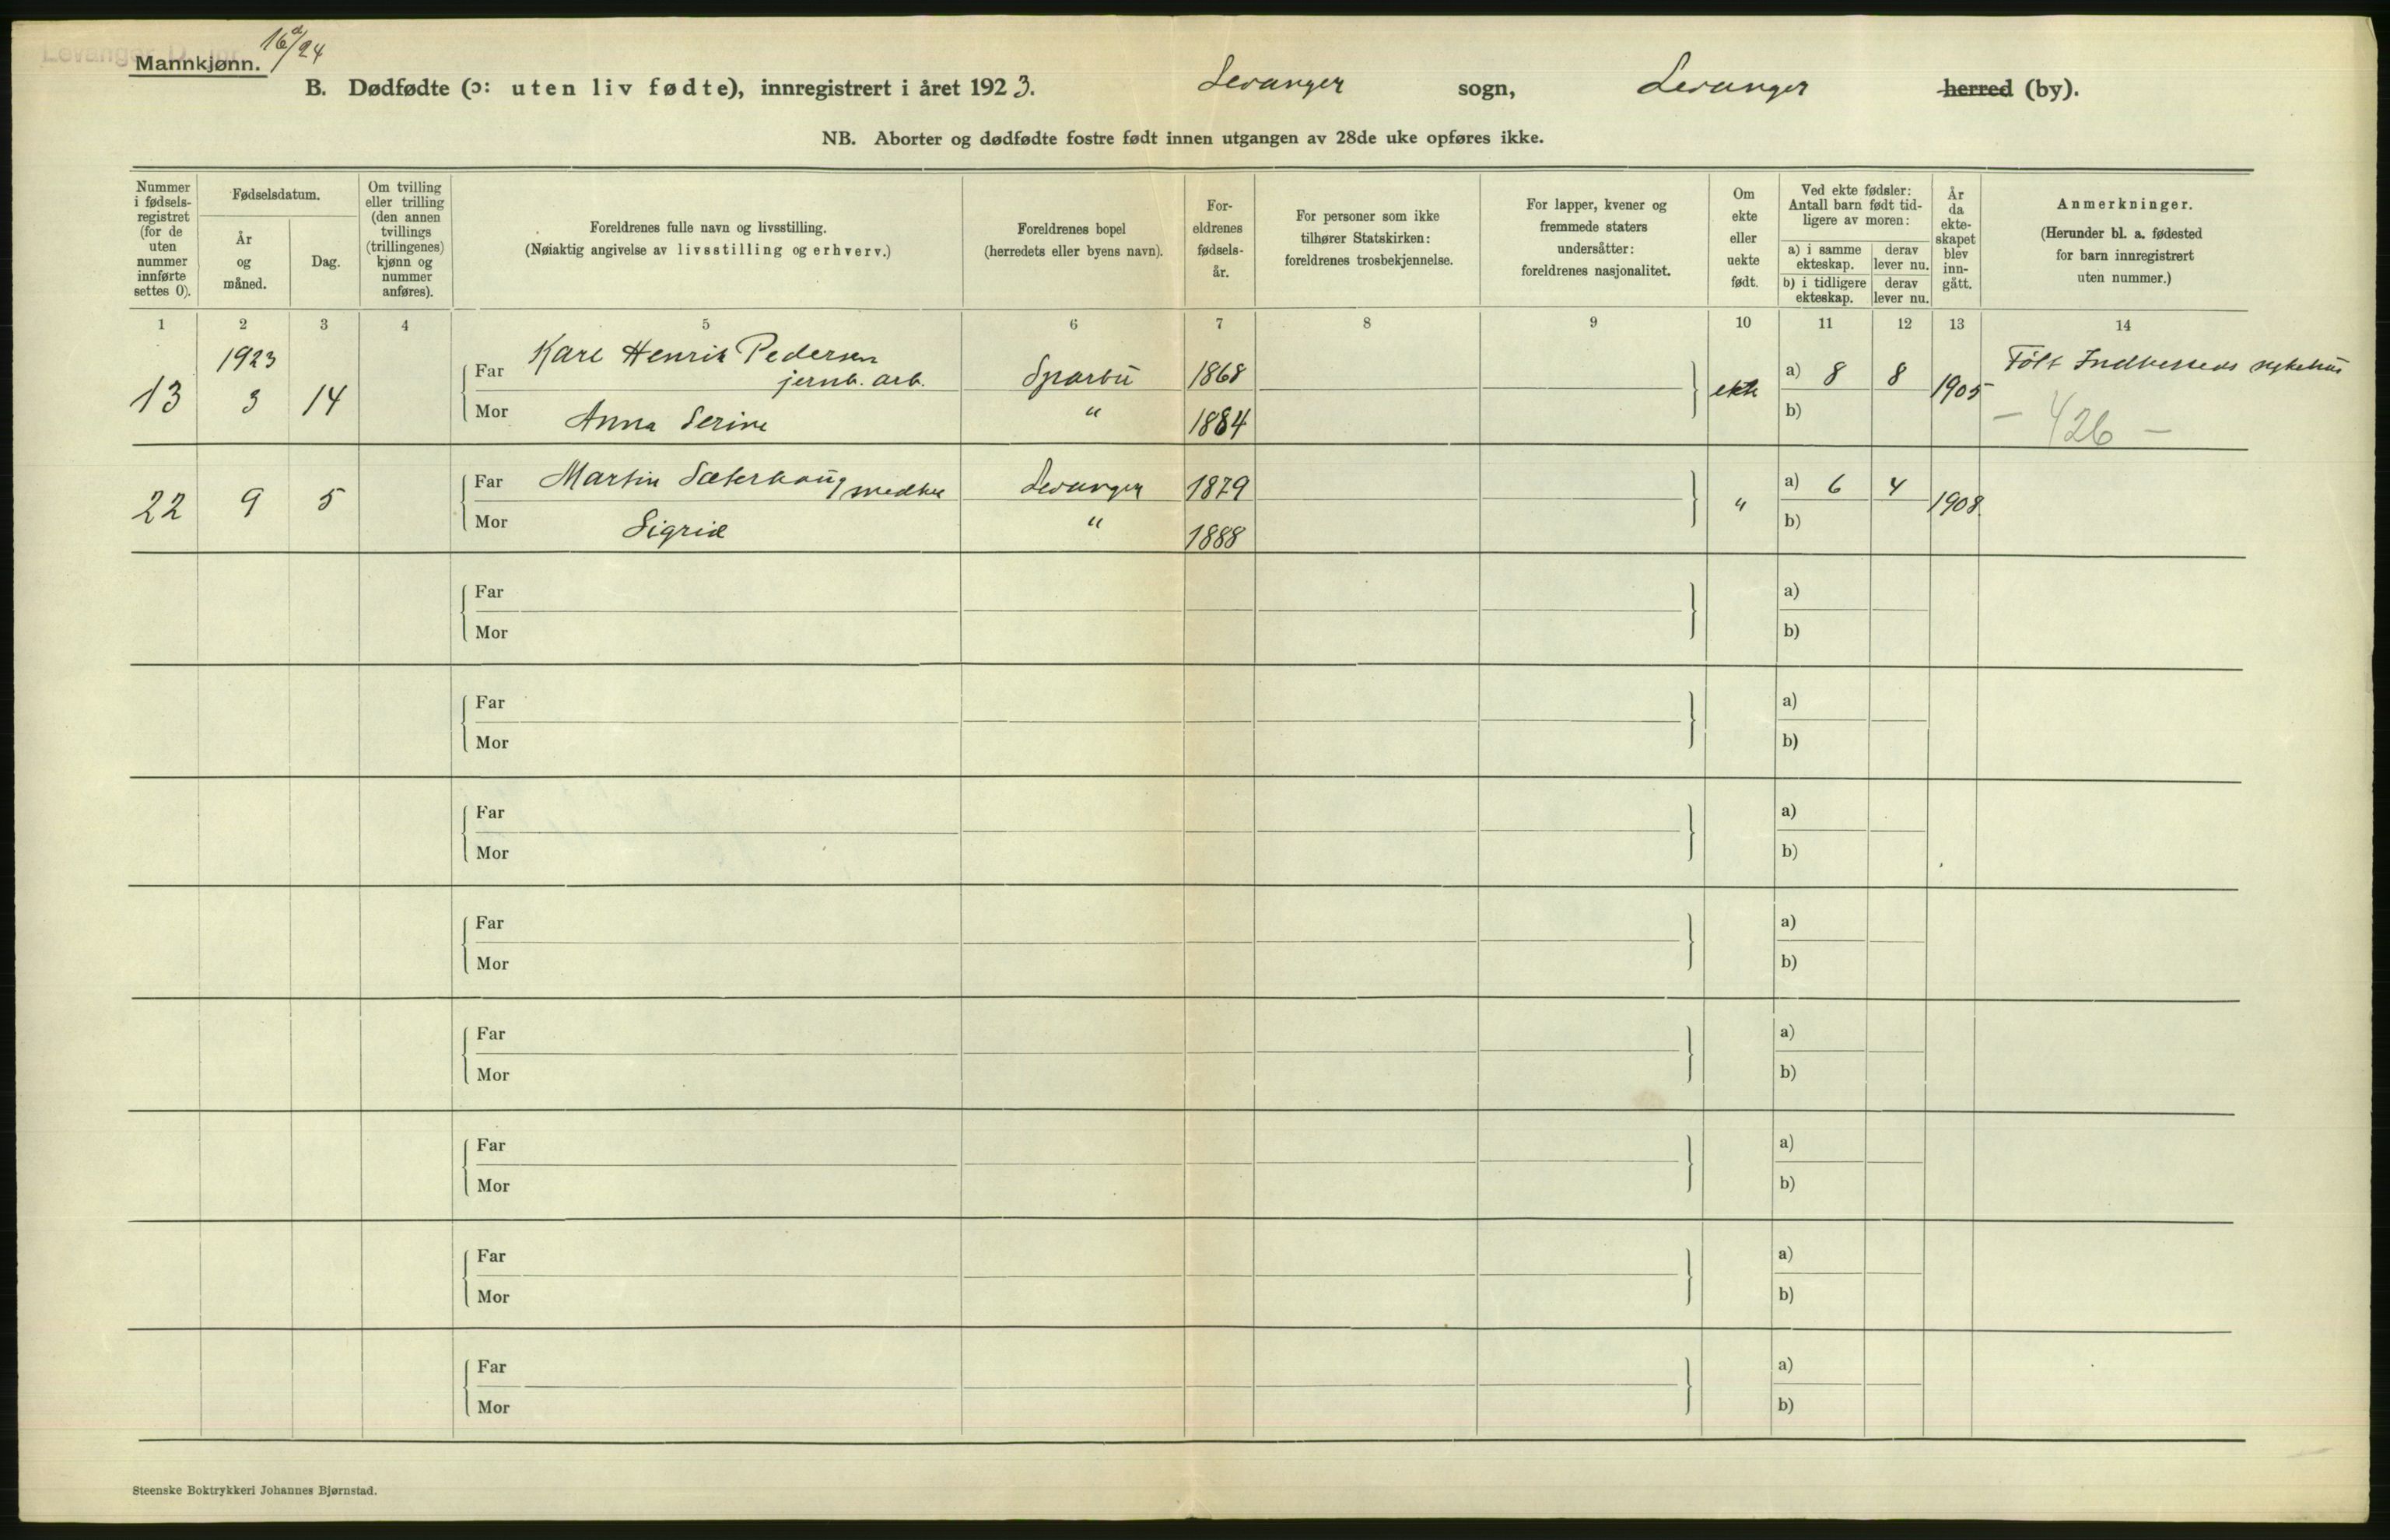 Levanger D. jnr. 16a/24
Mannkjønn.
B. Dødfødte (ɔ: uten liv fødte), innregistrert i året 1923. Levanger sogn, Levanger herred (by).
NB. Aborter og dødfødte fostre født innen utgangen av 28de uke opføres ikke.
Nummer i fødsels-registret (for de uten nummer innførte settes 0).
Fødselsdatum.
År og måned.
Dag.
Om tvilling eller trilling (den annen tvillings (trillingenes) kjønn og nummer anføres).
Foreldrenes fulle navn og livsstilling.
(Nøiaktig angivelse av livsstilling og erhverv.)
Foreldrenes bopel
(herredets eller byens navn).
For-eldrenes fødsels-år.
For personer som ikke tilhører Statskirken: foreldrenes trosbekjennelse.
For lapper, kvener og fremmede staters undersåtter: foreldrenes nasjonalitet.
Om ekte eller uekte født.
Ved ekte fødsler: Antall barn født tid-ligere av moren:
a) i samme ekteskap. derav lever nu.
b) i tidligere ekteskap. derav lever nu.
År da ekte-skapet blev inn-gått.
Anmerkninger.
(Herunder bl. a. fødested for barn innregistrert uten nummer.)
1 2 3 4 5 6 7 8 9 10 11 12 13 14
1923
13 3 14
Far Karl Henrik Pedersen
jernb. arb. Sparbu 1868 ekte a) 8 8 1905 Indherreds sykehus
Mor Anna Serine " 1884 b) - 426 -
22 9 5
Far Martin Sæterhaug Levanger 1879 " a) 6 4 1908
Mor Sigrid " 1888 b)
Far a)
Mor b)
Far a)
Mor b)
Far a)
Mor b)
Far a)
Mor b)
Far a)
Mor b)
Far a)
Mor b)
Far a)
Mor b)
Far a)
Mor b)
Steenske Boktrykkeri Johannes Bjørnstad.